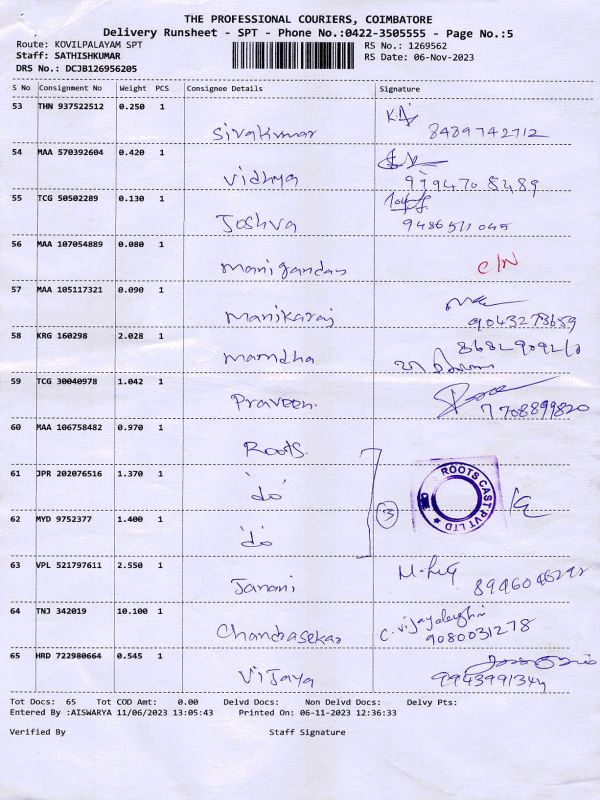 THE PROFESSIONAL COURIERS, COIMBATORE
Delivery Runsheet - SPT - Phone No.:0422-3505555 - Page No.:5
Route: KOVILPALAYAM SPT RS No.: 1269562
Staff: SATHISHKUMAR RS Date: 06-Nov-2023
DRS No.: DCJB126956205
S No Consignment No Weight PCS Consignee Details Signature
53 THN 937522512 0.250 1
Sivakumar 8489742712
54 MAA 570392604 0.420 1
Vidhya 9994708489
55 TCG 50502289 0.130 1
Joshva
56 MAA 107054889 0.080 1
Manigandan C/N
57 MAA 105117321 0.090 1
Manikaraj 9043273659
58 KRG 160298 2.028 1
Mamdha
59 TCG 30040978 1.042 1
Praveen. 7708899820
60 MAA 106758482 0.970 1
Roots.
61 JPR 202076516 1.370 1 ROOTS CAST PVT LTD
"do" 3
62 MYD 9752377 1.400 1
"do"
63 VPL 521797611 2.550 1
Janani
64 TNJ 342019 10.100 1
Chandrasekar 9080031278
65 HRD 722980664 0.545 1
Vijaya
Tot Docs: 65 Tot COD Amt: 0.00 Delvd Docs: Non Delvd Docs: Delvy Pts:
Entered By :AISWARYA 11/06/2023 13:05:43 Printed On: 06-11-2023 12:36:33
Verified By Staff Signature